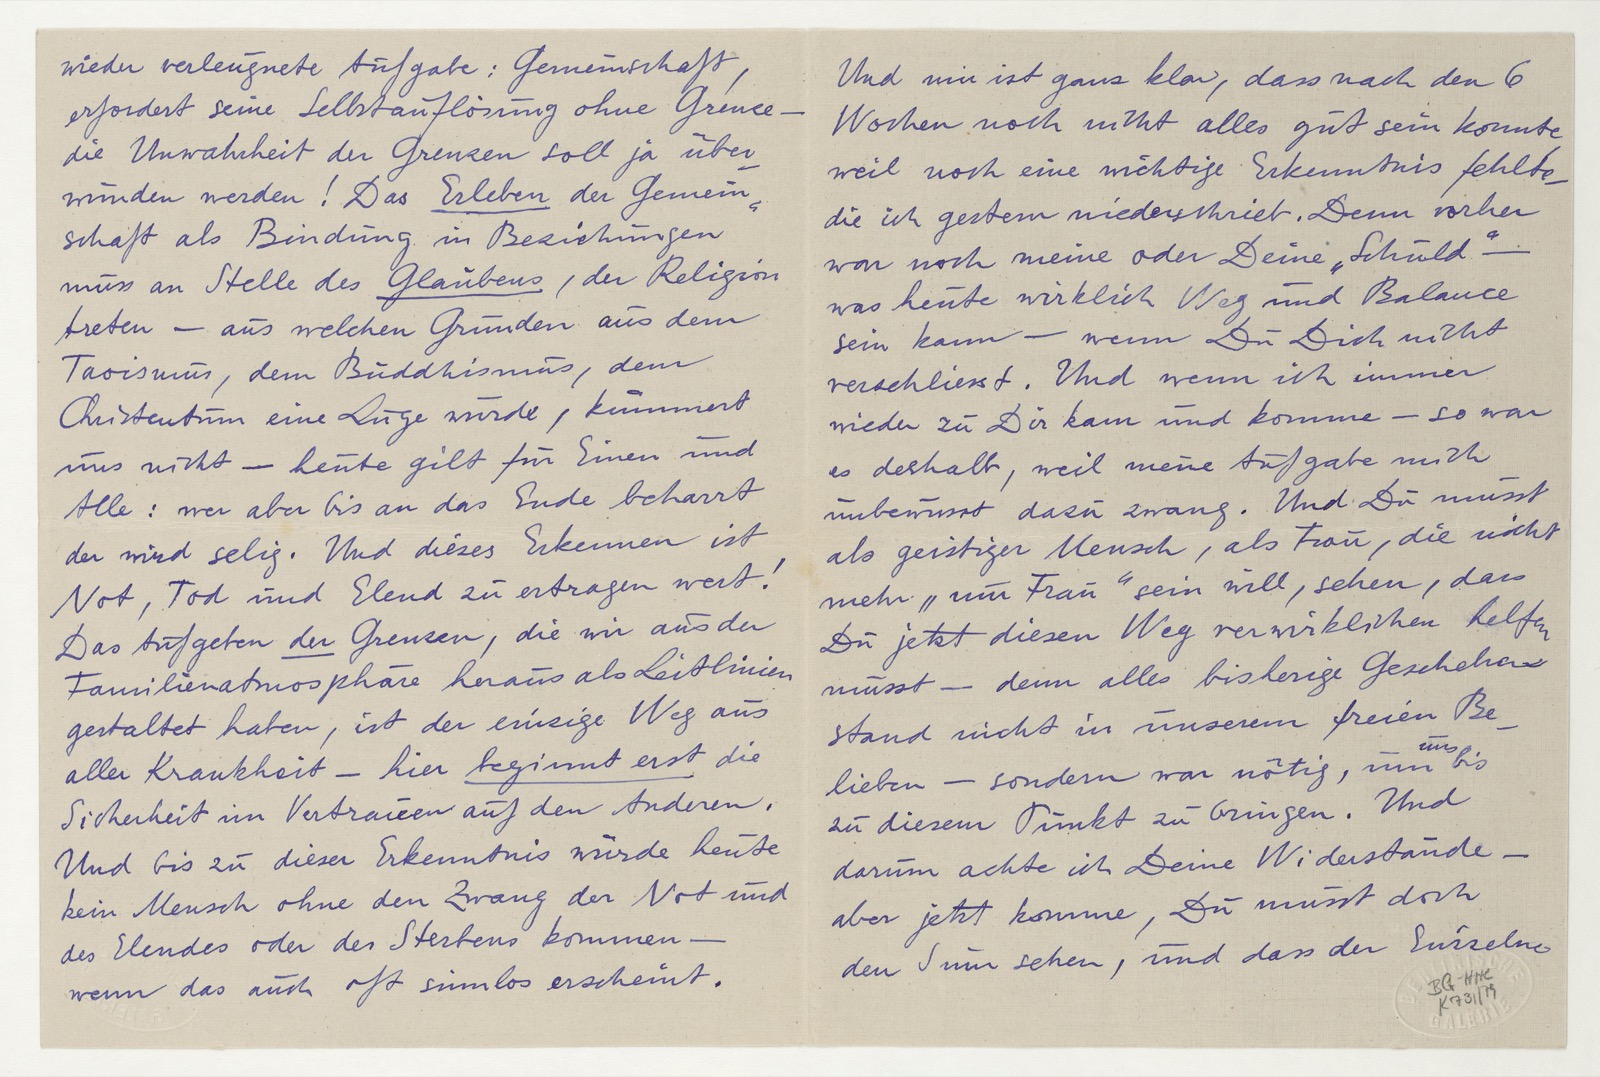 wieder verleugnete Aufgabe: Gemeinschaft,
erfordert seine Selbstauflösung ohne Grenze —
die Unwahrheit der Grenzen soll ja über-
wunden werden! Das Erleben der Gemein-
schaft als Bindung in Beziehungen
muss an Stelle des Glaubens, der Religion
treten — aus welchen Gründen aus dem
Taoismus, dem Buddhismus, dem
Christentum eine Lüge wurde, kümmert
uns nicht — heute gilt für Einen und
Alle: wer aber bis an das Ende beharrt
der wird selig. Und dieses Erkennen ist
Not, Tod und Elend zu ertragen wert!
Das Aufgeben der Grenzen, die wir aus der
Familienatmosphäre heraus als Leitlinien
gestaltet haben, ist der einzige Weg aus
aller Krankheit — hier beginnt erst die
Sicherheit im Vertrauen auf den Anderen.
Und bis zu dieser Erkenntnis würde heute
kein Mensch ohne den Zwang der Not und
des Elendes oder des Sterbens kommen —
wenn das auch oft sinnlos erscheint.
Und mir ist ganz klar, dass nach den 6
Wochen noch nicht alles gut sein konnte
weil noch eine wichtige Erkenntnis fehlte—
die ich gestern niederschrieb. Denn vorher
war noch meine oder Deine „Schuld“ —
was heute wirklich Weg und Balance
sein kann — wenn Du Dich nicht
verschliesst. Und wenn ich immer
wieder zu Dir kam und komme — so war
es deshalb, weil meine Aufgabe mich
unbewusst dazu zwang. Und Du musst
als geistiger Mensch, als Frau, die nicht
mehr „nur Frau“ sein will, sehen, dass
Du jetzt diesen Weg verwirklichen helfen
musst — denn alles bisherige Geschehen
stand nicht in unserem freien Be-
lieben — sondern war nötig, um uns bis
zu diesem Punkt zu bringen. Und
darum achte ich Deine Widerstände —
aber jetzt komme, Du musst doch
den Sinn sehen, und dass der Einzelne
BG-HHC
K 731/79
BERLINISCHE
GALERIE